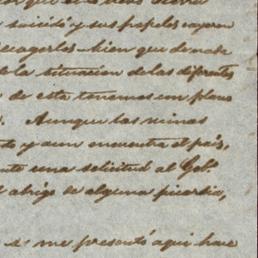 suicidó y sus papeles cayeron
recogerlos bien que de nada
la situacion de las diferentes
de esta tenemos un plano
Aunque las minas
y aun encuentra el país,
una solicitud al Gob.
abrigo de alguna picardia,
se me presentó aqui hace